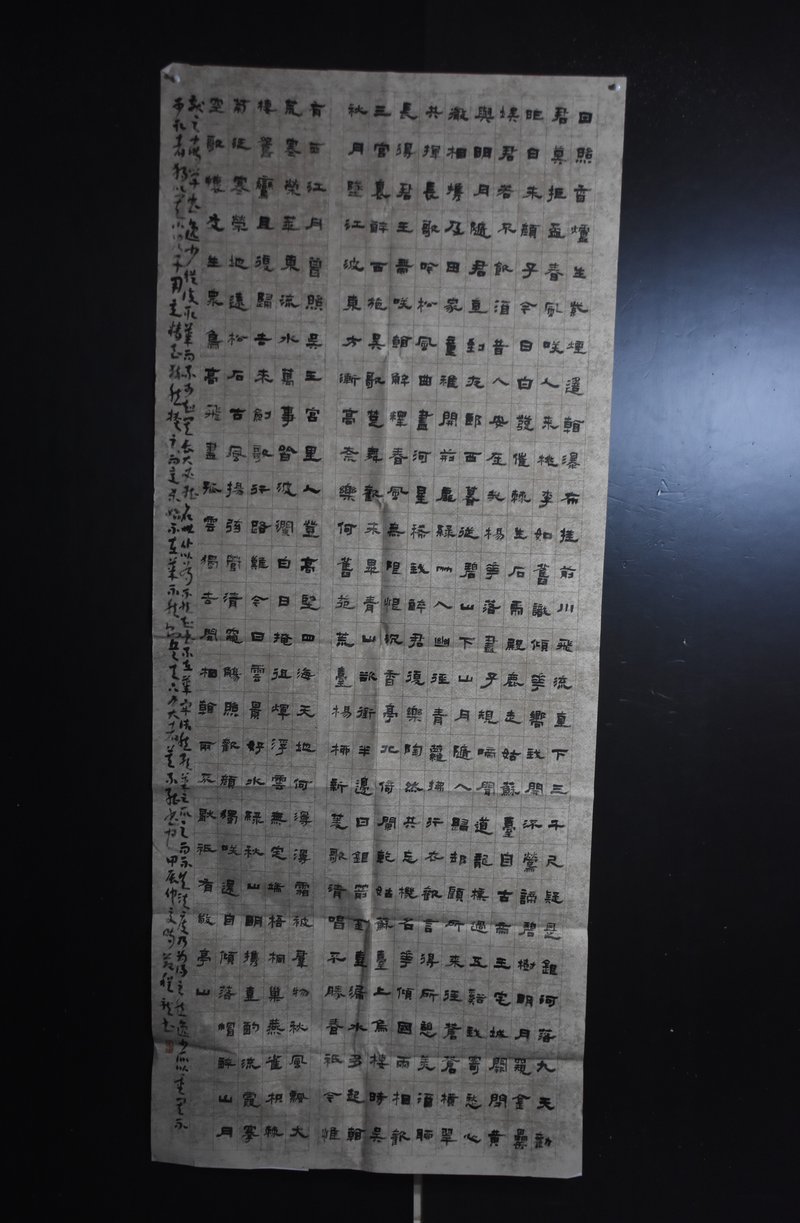 日照香爐生紫煙遙看瀑布挂前川飛流直下三千尺疑是銀河落九天勸
君莫拒盃春風咲人來桃李如舊識傾華嚮我開流鶯啼碧樹明月窺金罍
昨日朱顏子今日白髮催棘生石虎殿鹿走姑蘇臺自古帝王宅城闕閉黃
埃君若不飲酒昔人安在哉楊華落盡子規啼聞道龍標過五谿我寄愁心
與明月隨君直到夜郎西暮從碧山下山月隨人歸却顧所來徑蒼蒼橫翠
微相攜及田家童稚開荊扉綠竹入幽徑青蘿拂行衣歡言得所憩美酒聊
共揮長歌吟松風曲盡河星稀我醉君復樂陶然共忘機名華傾國兩相歡
長得君王帶咲看解釋春風無限恨沉香亭北倚闌乾姑蘇臺上烏棲時吳
王宮裏醉西施吳歌楚舞歡未畢青山欲銜半邊日銀箭金壺漏水多起看
秋月墜江波東方漸高奈樂何舊苑荒臺楊柳新菱歌清唱不勝春祇今惟
有西江月曾照吳王宮里人登高望四海天地何漫漫霜被羣物秋風飄大
荒寒榮華東流水萬事皆波瀾白日掩徂輝浮雲無定端梧桐巢燕雀枳棘
棲鴛鸞且復歸去來劍歌行路難今日雲景好水綠秋山明攜壺酌流霞搴
菊泛寒榮地遠松石古風揚弦管清窺觴照歡顏獨咲還自傾落帽醉山月
空歌懷友生衆鳥高飛盡孤雲獨去閒相看兩不厭祇有敬亭山